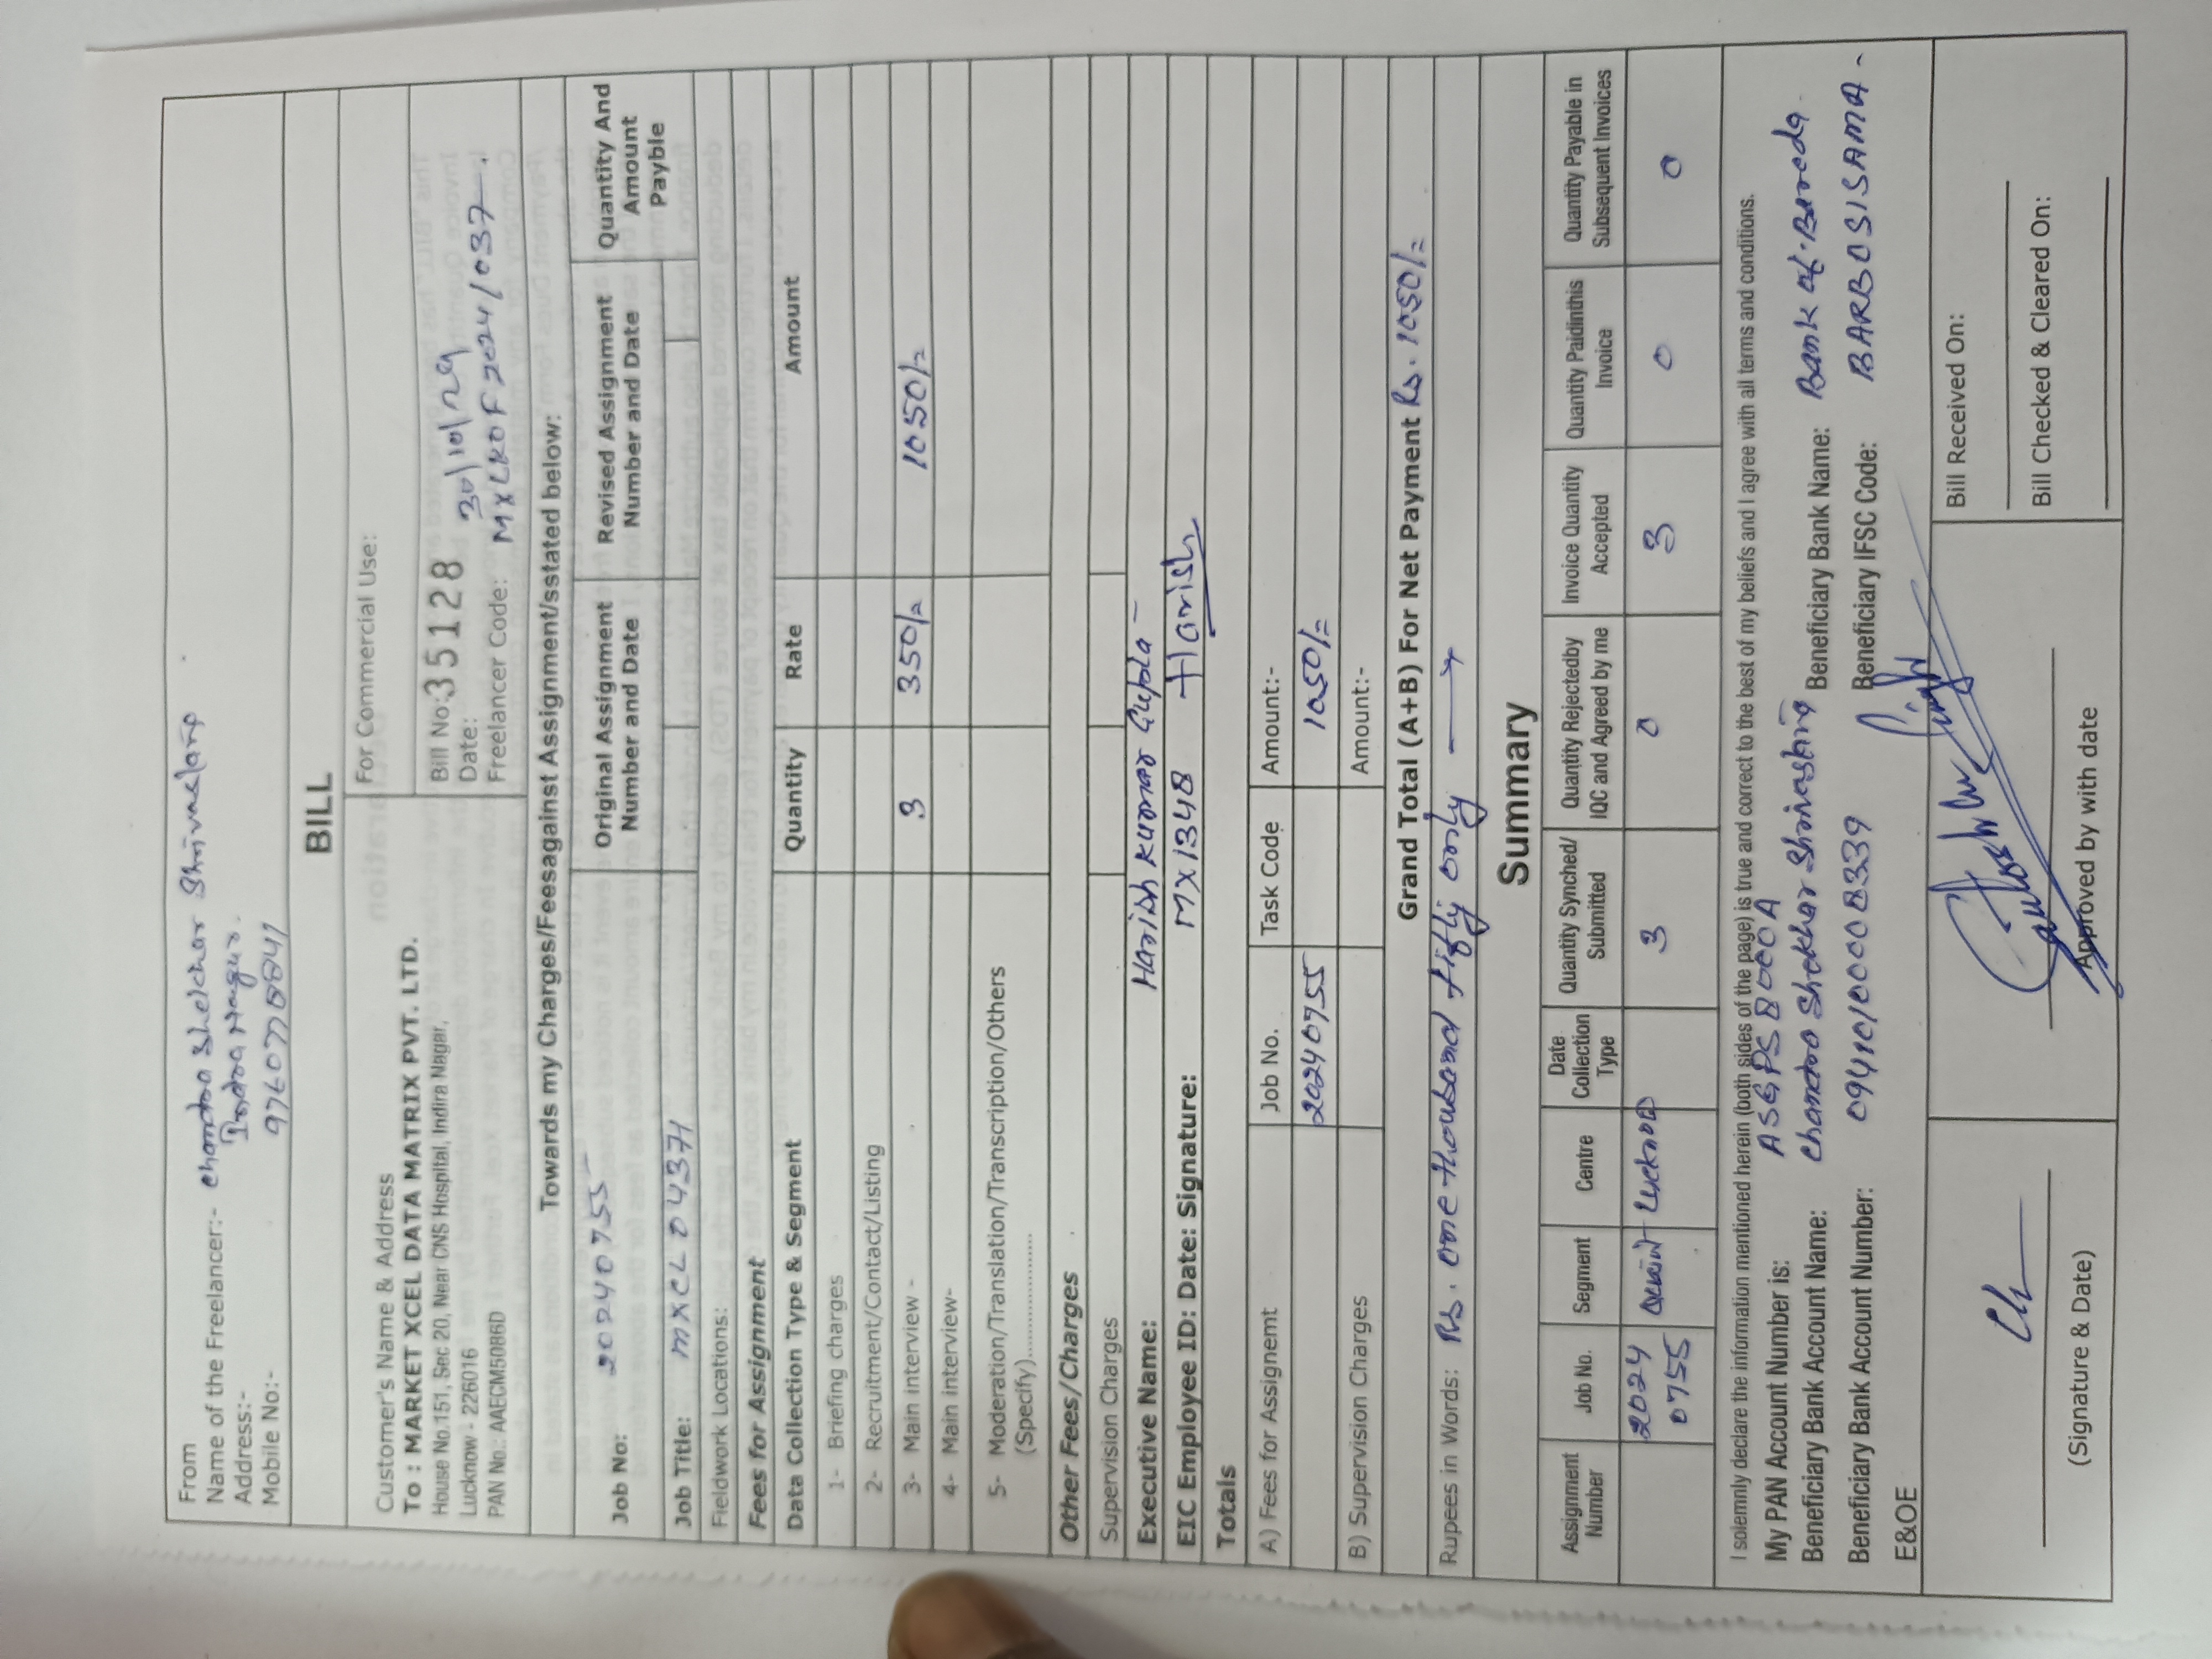 From
Name of the Freelancer:- chandra Shekhar Shrivastava
Address:- Indra Nagar.
Mobile No:-
BILL
Customer's Name & Address
To : MARKET XCEL DATA MATRIX PVT. LTD.
House No.151, Sec 20, Near CNS Hospital, Indira Nagar,
Lucknow - 226016
PAN No.: AAECM5086D
For Commercial Use:
Bill No: 35128
Date: 30/10/24
Freelancer Code: MXLKOF2024/037
Towards my Charges/Feesagainst Assignment/sstated below:
Job No: 20240755
Original Assignment Number and Date
Revised Assignment Number and Date
Quantity And Amount Payble
Job Title: MXCL04371
Fieldwork Locations:
Fees for Assignment
Data Collection Type & Segment Quantity Rate Amount
1- Briefing charges
2- Recruitment/Contact/Listing
3- Main interview - 3 350/= 1050/=
4- Main interview-
5- Moderation/Translation/Transcription/Others
(Specify)........................
Other Fees/Charges
Supervision Charges
Executive Name: Harish Kumar Gupta
EIC Employee ID: Date: Signature: MX1348 Harish
Totals
A) Fees for Assignemt Job No. Task Code Amount:-
20240755 1050/=
B) Supervision Charges Amount:-
Grand Total (A+B) For Net Payment Rs. 1050/=
Rupees in Words: Rs. One thousand fifty only
Summary
Assignment Number Job No. Segment Centre Date Collection Type Quantity Synched/ Submitted Quantity Rejectedby IQC and Agreed by me Invoice Quantity Accepted Quantity Paidinthis Invoice Quantity Payable in Subsequent Invoices
2024 0755 Lucknow 3 0 3 0 0
I solemnly declare the information mentioned herein (both sides of the page) is true and correct to the best of my beliefs and I agree with all terms and conditions.
My PAN Account Number is: ASGPS8000A
Beneficiary Bank Account Name: Chandra Shekhar Shrivastava Beneficiary Bank Name: Bank of Baroda
Beneficiary Bank Account Number: 09410100008339 Beneficiary IFSC Code: BARB0SISAMA
E&OE
(Signature & Date)
Approved by with date
Bill Received On:
Bill Checked & Cleared On: